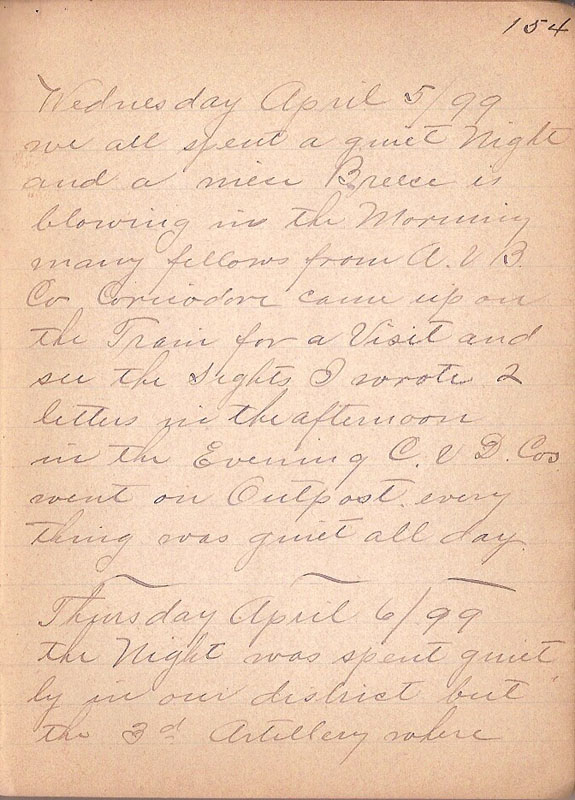 154
Wednesday April 5/99
we all spent a quiet Night
and a niese Breese is
blowing in the Morning
many fellows from A. & B.
Co Comodore came up on
the Train for a Visit and
see the Sights I wrote 2
letters in the afternoon
in the Evening C. & D. Cos
went on Outpost. every
thing was quiet all day.
Thursday April 6/99
the Night was spent quiet
ly in our district but
the 3d Artillery where